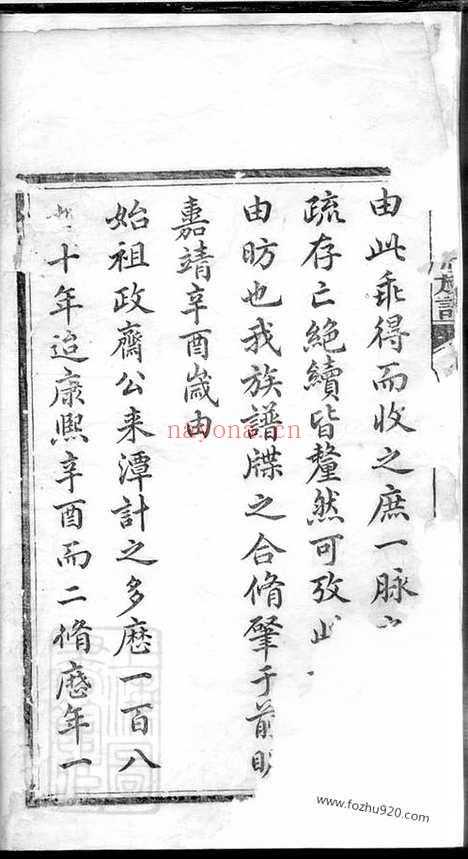 由此乘得而收之庶一脉
疏存亡絶續皆釐然可攷此
由昉也我族譜牒之合脩肇于前明
嘉靖辛酉嵗由
始祖政齋公来潭計之多厯一百八
十年迨康熙辛酉而二脩厯年一
族譜
nayona.cn
www.fozhu920.com